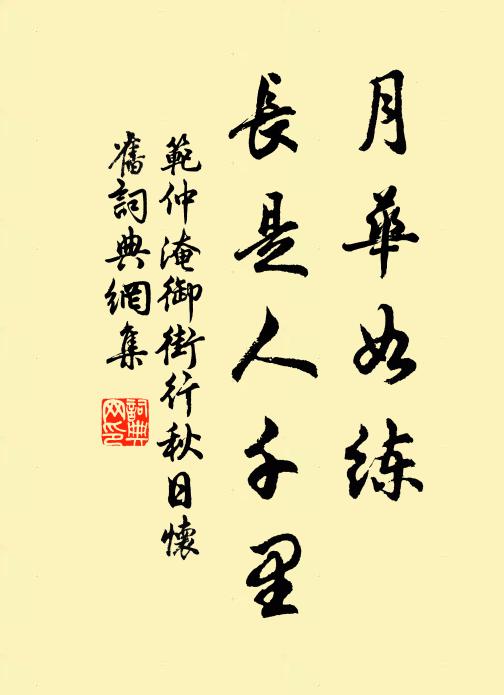 月華如練
長是人千里
範仲淹御街行秋日懷
舊詞典網集
詞典
网印